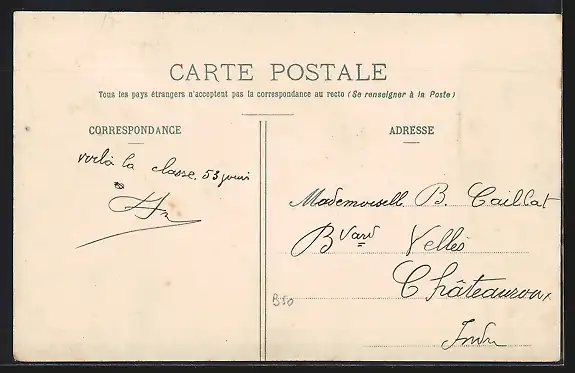 CARTE POSTALE
Tous les pays étrangers n'acceptent pas la correspondance au recto (Se renseigner à la Poste)
CORRESPONDANCE
ADRESSE
voilà la classe. 53 jours
Mademoiselle B. Caillat
Bvard Vellès
Châteauroux
Indre
B50